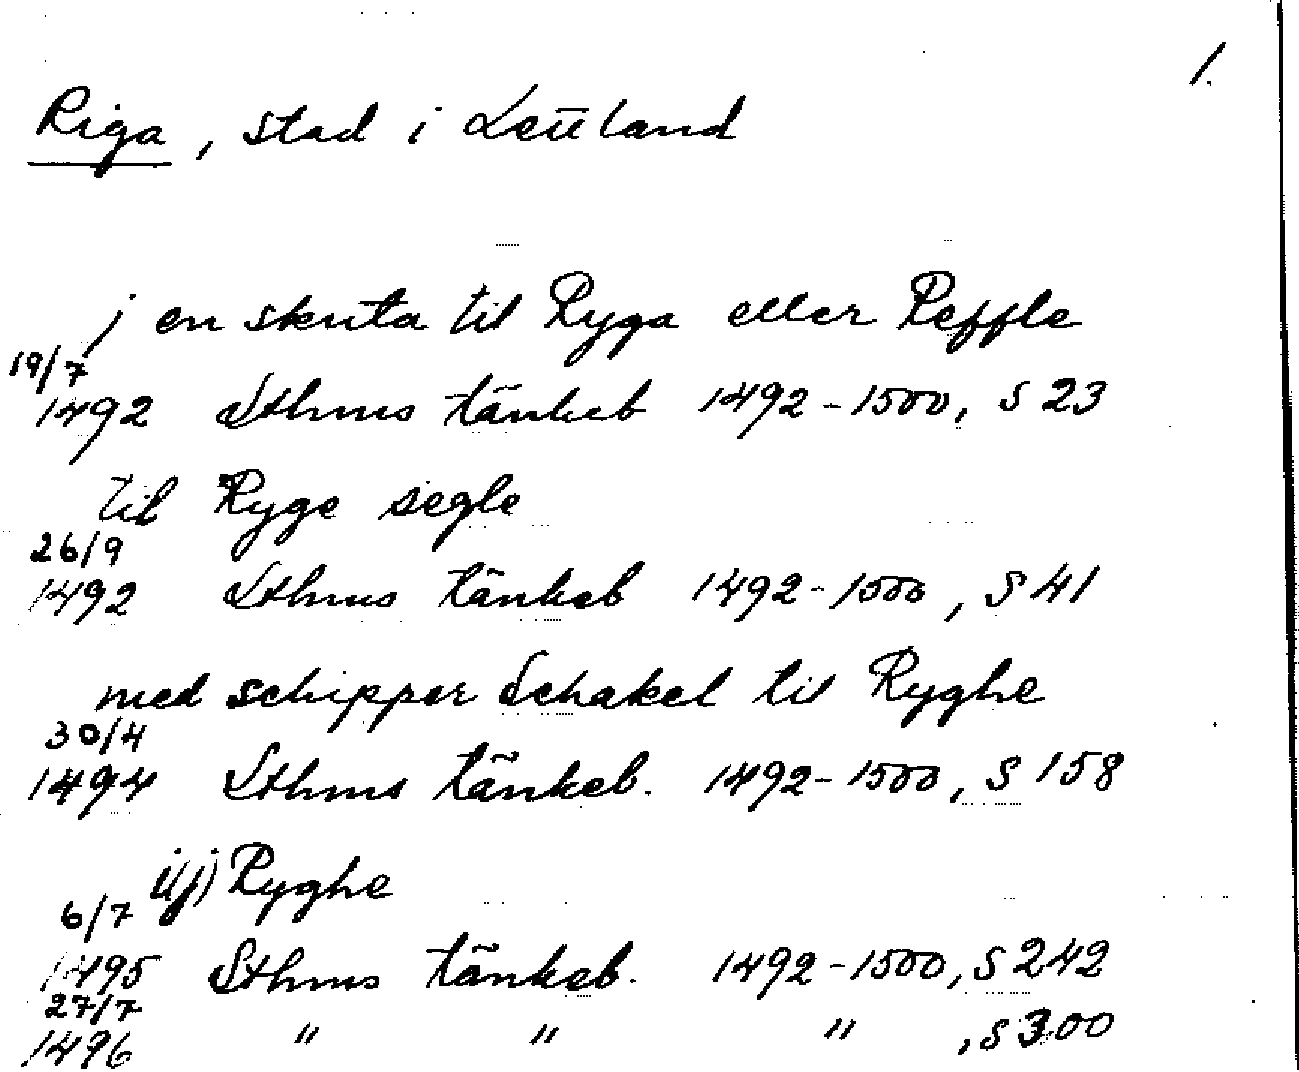 1.
Riga, stad i Lettland
j en skuta til Ryga eller Reffle
19/7
1492 Sthms tänkeb 1492-1500, S 23
til Ryge segle
26/9
1492 Sthms tänkeb 1492-1500, S 41
med schipper Schakel til Ryghe
30/4
1494 Sthms tänkeb. 1492-1500, S 158
i(j) Ryghe
6/7
1495 Sthms tänkeb. 1492-1500, S 242
27/7
1496 " " " , S 300